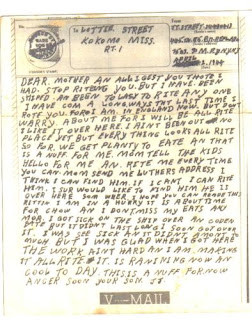 To LOTTER STREET
KOKOMO MISS.
RT. 1
DEAR MOTHER AN ALL I GEST YOU THOTE I
HAD STOP RITEING YOU. BUT I HAVE BEEN
TO RITE ANY ONE
I HAVE COM A LONG WAYS THE LAST TIME I
ROTE YOU. FOR I AM IN ENGLAND NOW. BUT DONT
WARRY ABOUT ME FOR I WILL BE ALL RITE
I LIKE IT OVER HERE I AINT BEEN OUT NO
PLACE YET BUT EVERY THING LOOKS ALL RITE
SO FOR. WE GET PLANTY TO EATE AN THAT
IS A NUFF FOR ME. MOM TELL THE KIDS
HELLO FOR ME AN RITE ME EVERY TIME
YOU CAN. MOM SEND ME LUTHERS ADDRESS I
THINK I CAN FIND HIM. IF I CANT I CAN RITE
HIM. I SUR WOULD LIKE TO FIND HIM HE IS
OVER HERE SOM WHER. I HOPE YOU CAN READ THIS
RITTIN I AM IN A HURRY IT IS ABOUT TIME
FOR CHOW AN I DONT MISS MY EATS ANY
MOR. I GOT SICK ON THE SHIP OVER AN
BUT IT DIDNT LAST LONG I SOON GOT OVER
IT. I WAS SEE SICK BUT IT DIDNT AMONT TO
MUCH BUT I WAS GLAD WHEN I GOT HERE
THE WORK AINT HARD AN I AM MAKING
IT ALL RITE. IT IS RAINING NOW AN
COOL TO DAY. THIS IS A NUFF FOR NOW
ANSER SOON YOUR SON
V···—MAIL